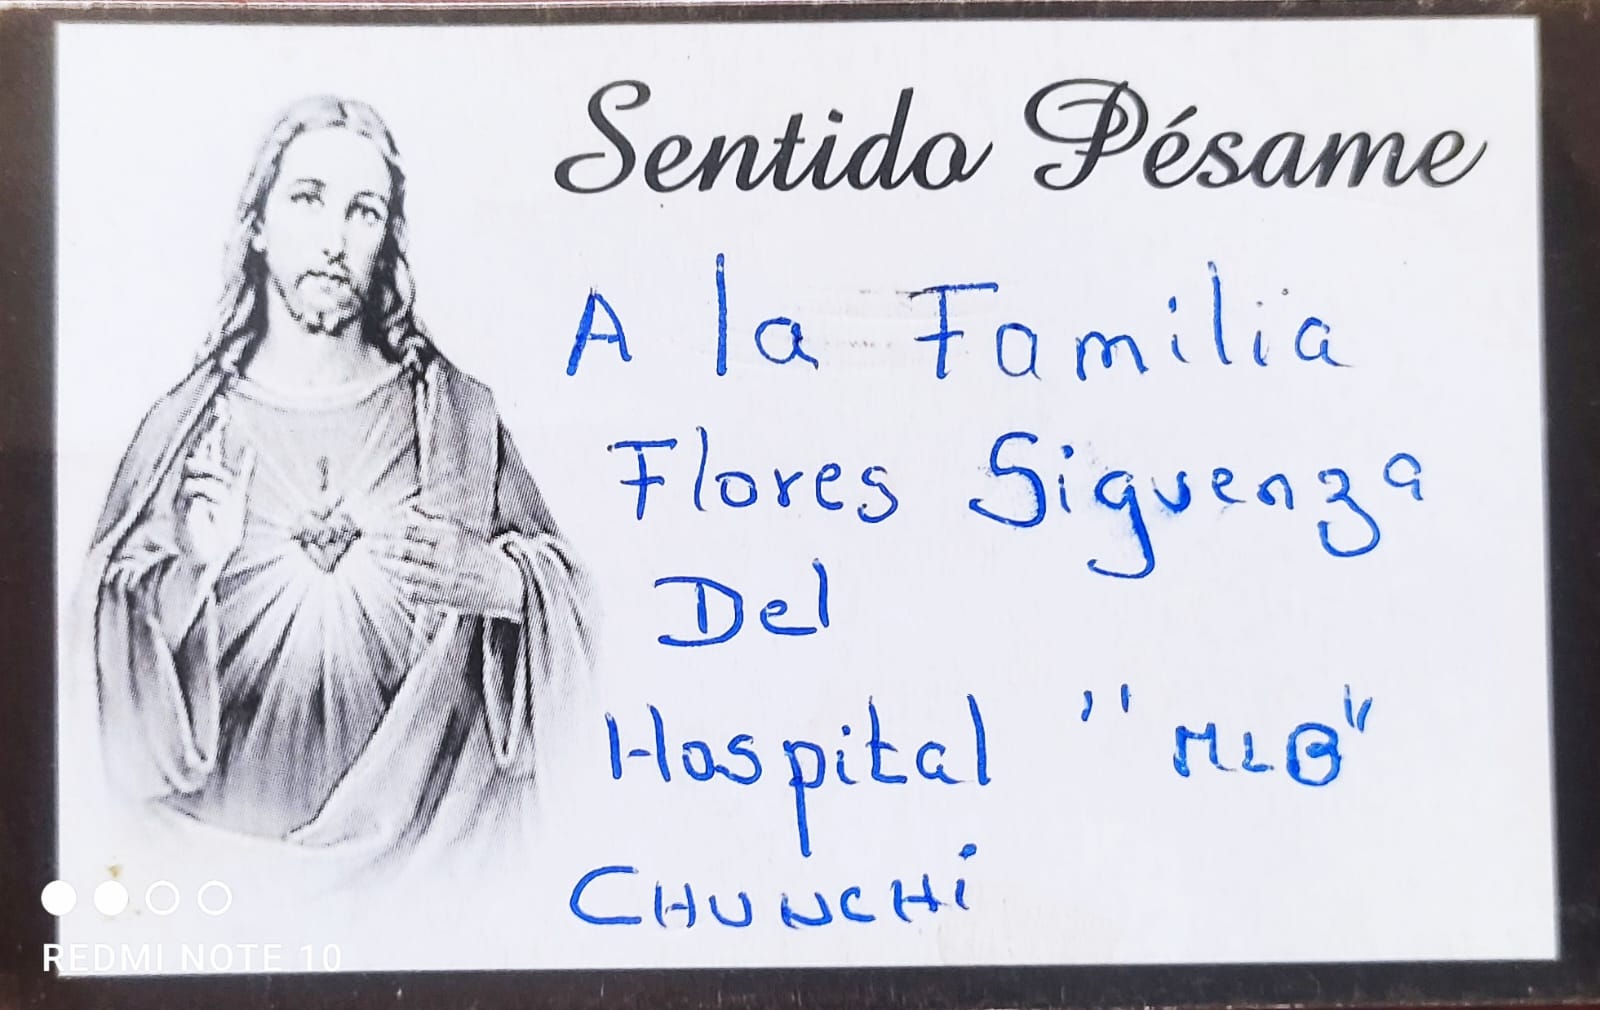 Sentido Pésame
A la Familia
Flores Siguenza
Del
Hospital "MLB"
CHUNCHi
REDMI NOTE 10